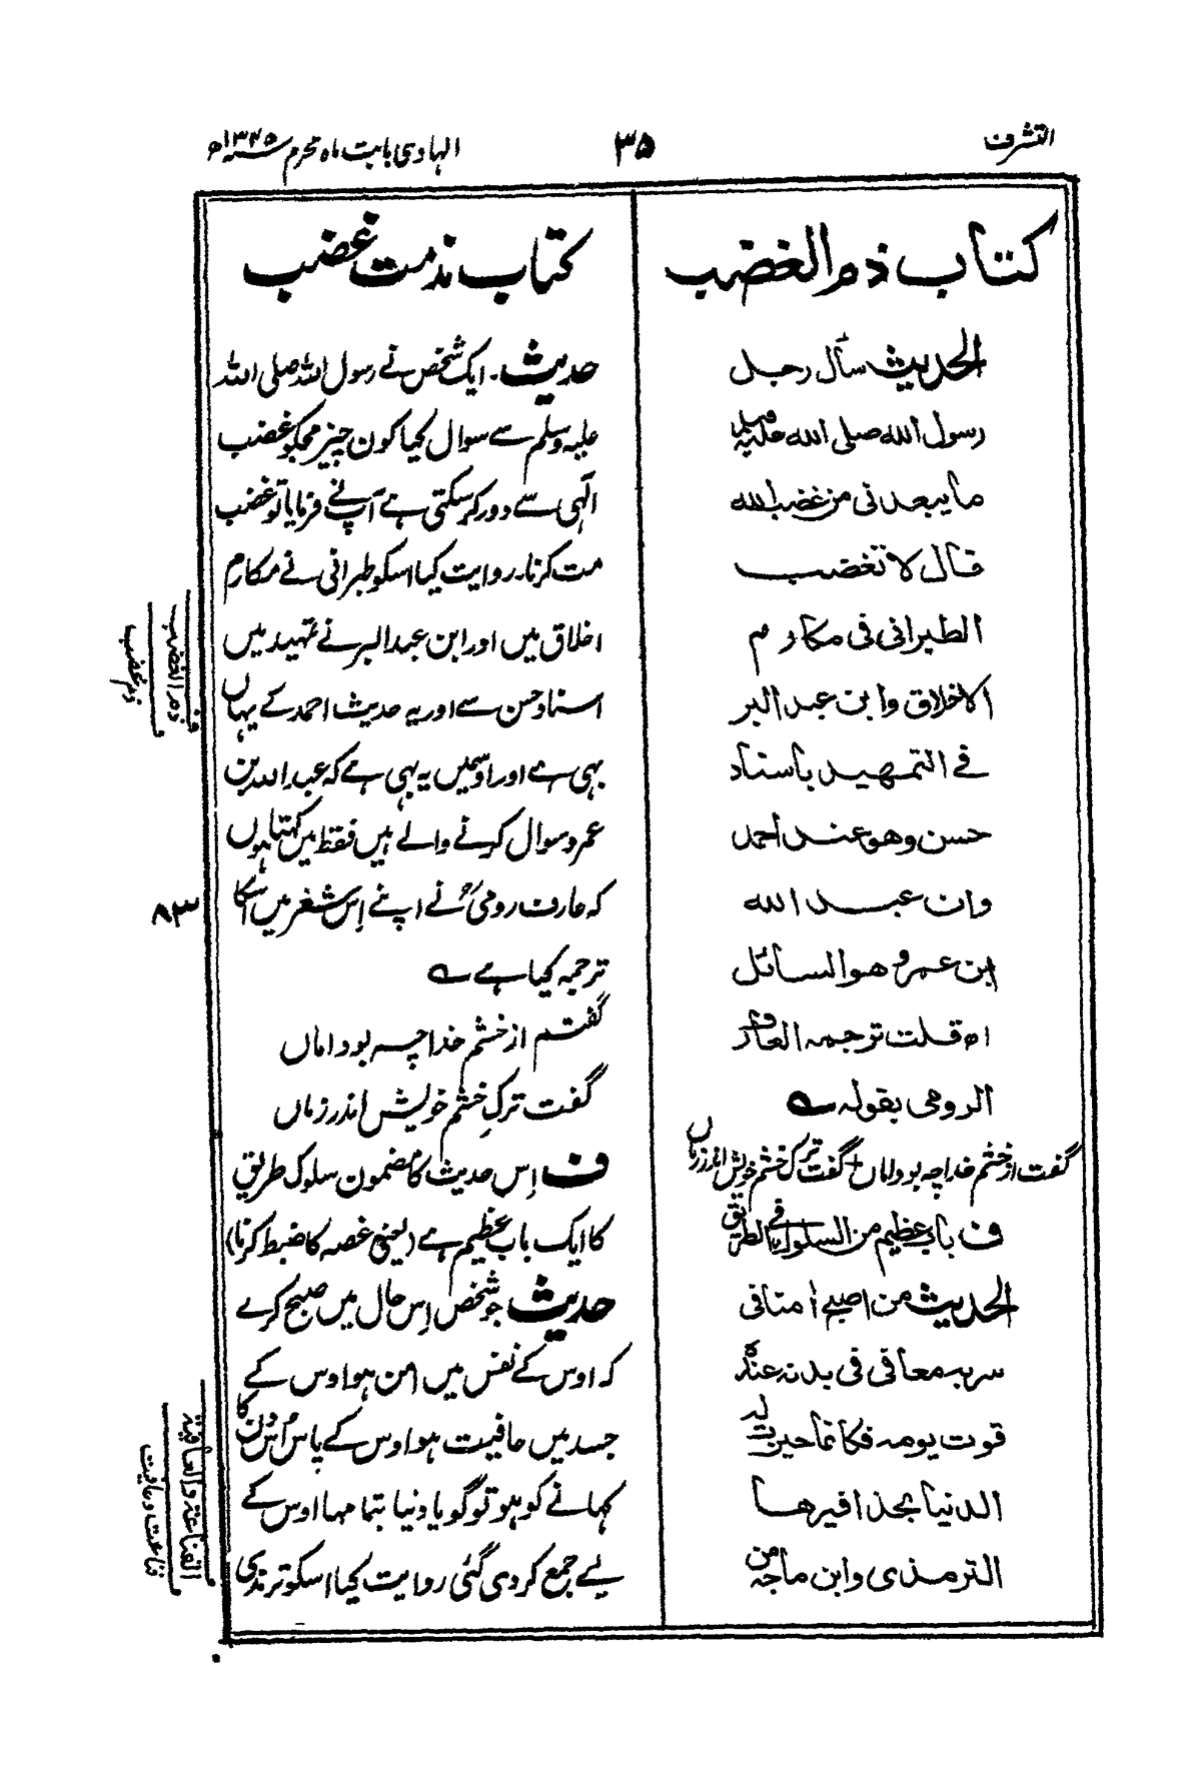 التشرف
۳۵
الہادی بابت ماہ محرم سنہ ۱۳۴۵ھ
کتاب ذم الغضب
الحدیث سأل رجل
رسول الله صلی الله علیہ وسلم
ما یبعدنی من غضب الله
قال لا تغضب
الطبرانی فی مکارم
الاخلاق وابن عبد البر
فے التمھید باسناد
حسن وھو عند احمد
وان عبد الله
ابن عمرو ھو السائل
اھ قلت ترجمہ العارف
الرومی بقولہ ے
گفت از خشم خدا چہ بود اماں + گفت ترک خشم خویش اندر زماں
ف باب عظیم من السلوک فی الطریق
الحدیث من اصبح اٰمنا فی
سربہ معافی فی بدنہ عندہ
قوت یومہ فکانما حیزت لہ
الدنیا بحذافیرھا
الترمذی وابن ماجہ من
کتاب مذمت غضب
حدیث۔ ایک شخص نے رسول اللہ صلی اللہ
علیہ وسلم سے سوال کیا کون چیز مجکو غضب
الٰہی سے دور کر سکتی ہے آپنے فرمایا تو غضب
مت کرنا۔ روایت کیا اسکو طبرانی نے مکارم
اخلاق میں اور ابن عبد البر نے تمہید میں
اسناد حسن سے اور یہ حدیث احمد کے یہاں
بہی ہے اور اوسمیں یہ بہی ہے کہ عبد اللہ بن
عمرو سوال کرنے والے ہیں فقط میں کہتا ہوں
کہ عارف رومیؒ نے اپنے اِس شعر میں اسکا
ترجمہ کیا ہے ے
گفتم از خشم خدا چہ بود اماں
گفت ترکِ خشم خویش اندر زماں
ف اِس حدیث کا مضمون سلوک طریق
کا ایک باب عظیم ہے (یعنی غصہ کا ضبط کرنا)
حدیث جو شخص اِس حال میں صبح کرے
کہ اوس کے نفس میں امن ہو اوس کے
جسد میں عافیت ہو اوس کے پاس اُس دن کا
کہانے کو ہو تو گویا دنیا بتمامہا اوس کے
لیے جمع کر دی گئی روایت کیا اسکو ترمذی
ف ذم الغضب
ذم غضب
۸۳
القناعۃ والعافیۃ
قناعت و عافیت